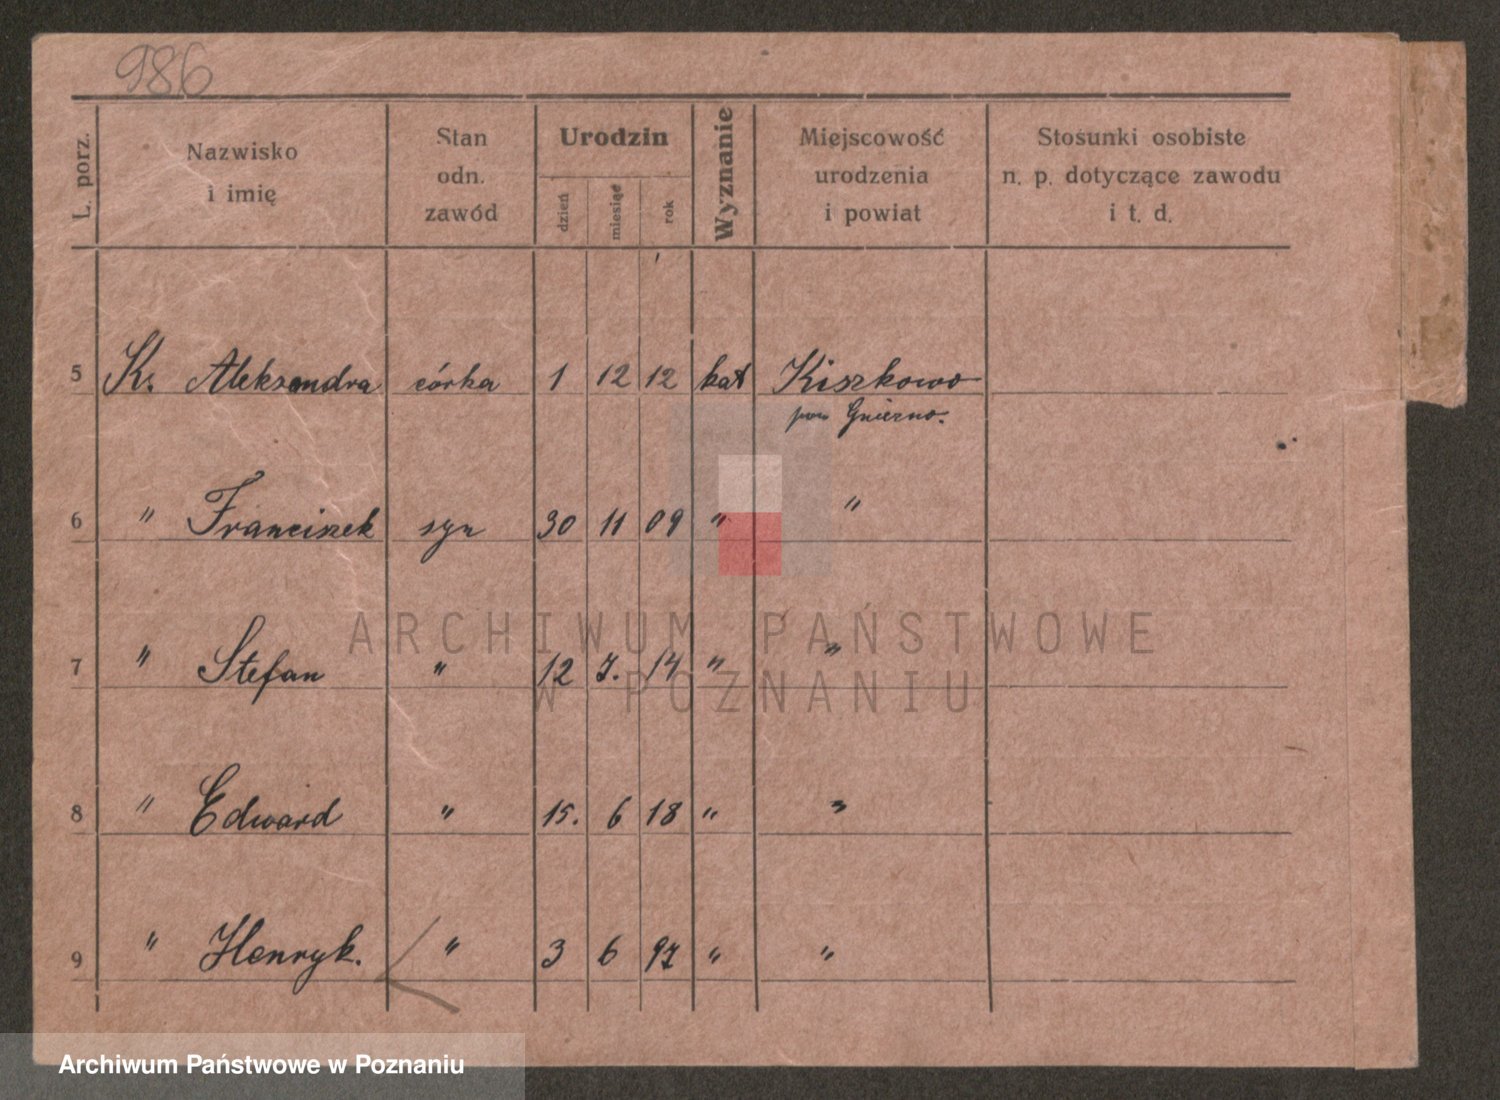 986
L. porz.
Nazwisko
i imię
Stan
odn.
zawód
Urodzin
dzień
miesiąc
rok
Wyznanie
Miejscowość
urodzenia
i powiat
Stosunki osobiste
n. p. dotyczące zawodu
i t. d.
5 Ks. Aleksandra córka 1 12 12 kat Kiszkowo
pow Gniezno.
6 " Franciszek syn 30 11 09 " "
7 " Stefan " 12 7. 14 " "
8 " Edward " 15. 6 18 " "
9 " Henryk. " 3 6 97 " "
ARCHIWUM PAŃSTWOWE
W POZNANIU
Archiwum Państwowe w Poznaniu